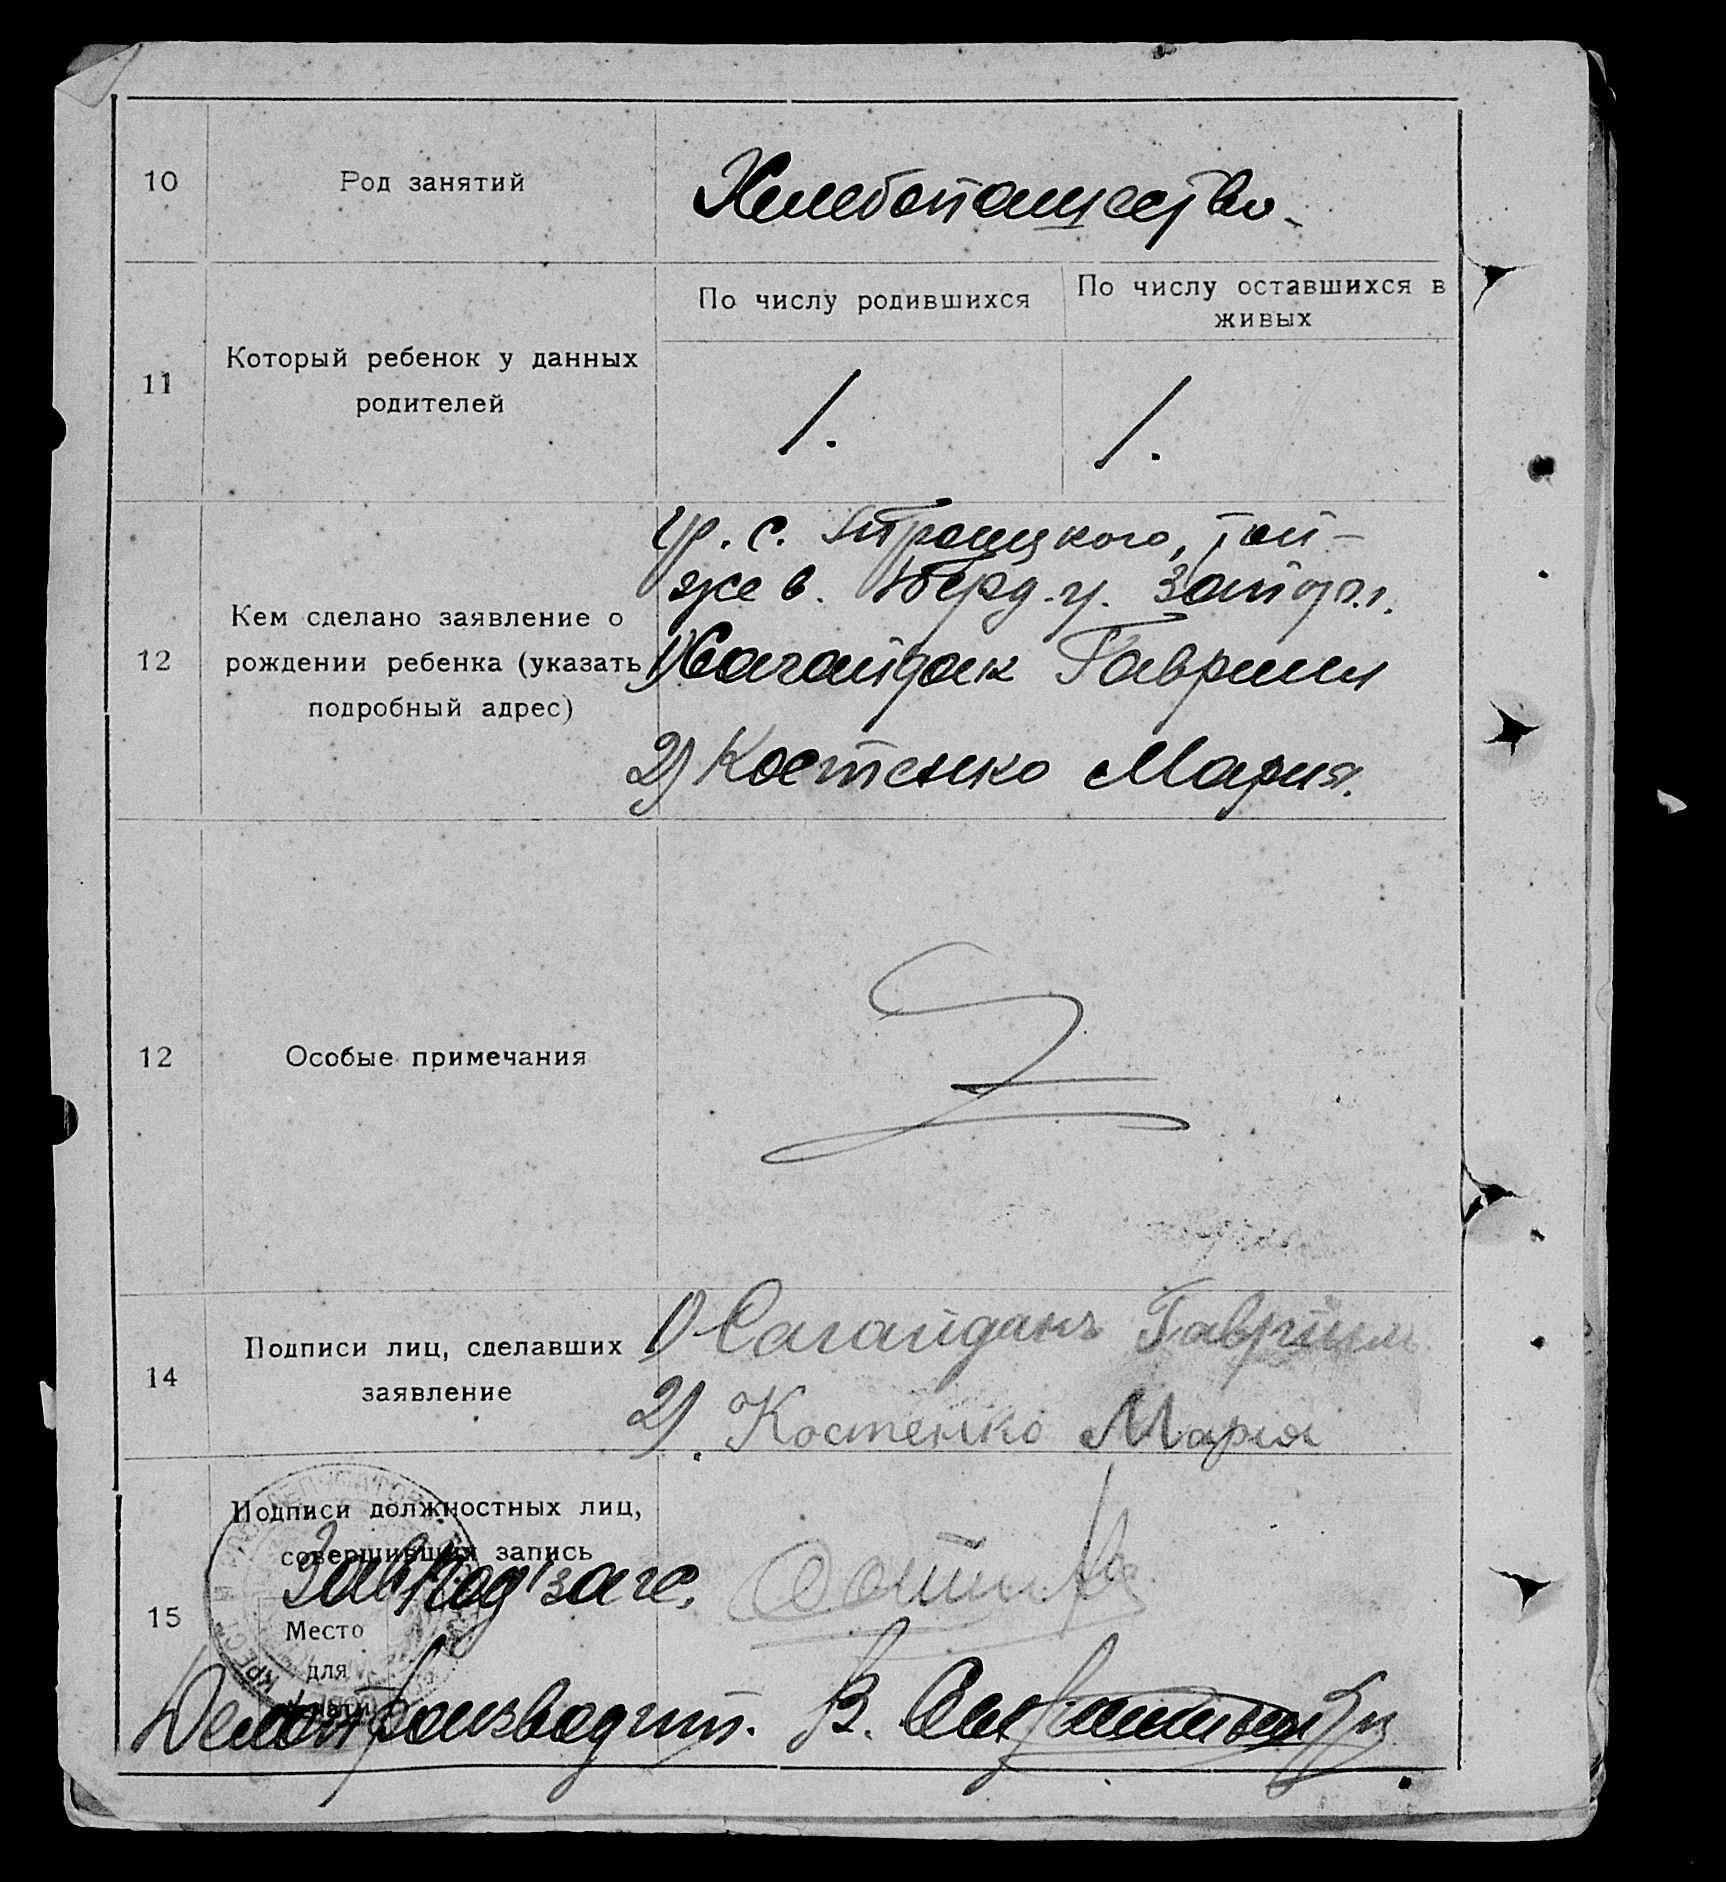 10
Род занятий
Хлебопашество.
11
Который ребенок у данных
родителей
По числу родившихся
По числу оставшихся в
живых
1.
1.
12
Кем сделано заявление о
рождении ребенка (указать
подробный адрес)
гр. с. Троицкого, той-
же в. Берд. у. Зап. гр.
1) Сагайдак Гавриил
2) Костенко Мария.
12
Особые примечания
14
Подписи лиц, сделавших
заявление
1) Сагайдакъ Гавриил
2). Костенко Мария
15
Подписи должностных лиц,
совершивших запись
Завподзагс.
Место
для
печати
Делопроизводит. В.